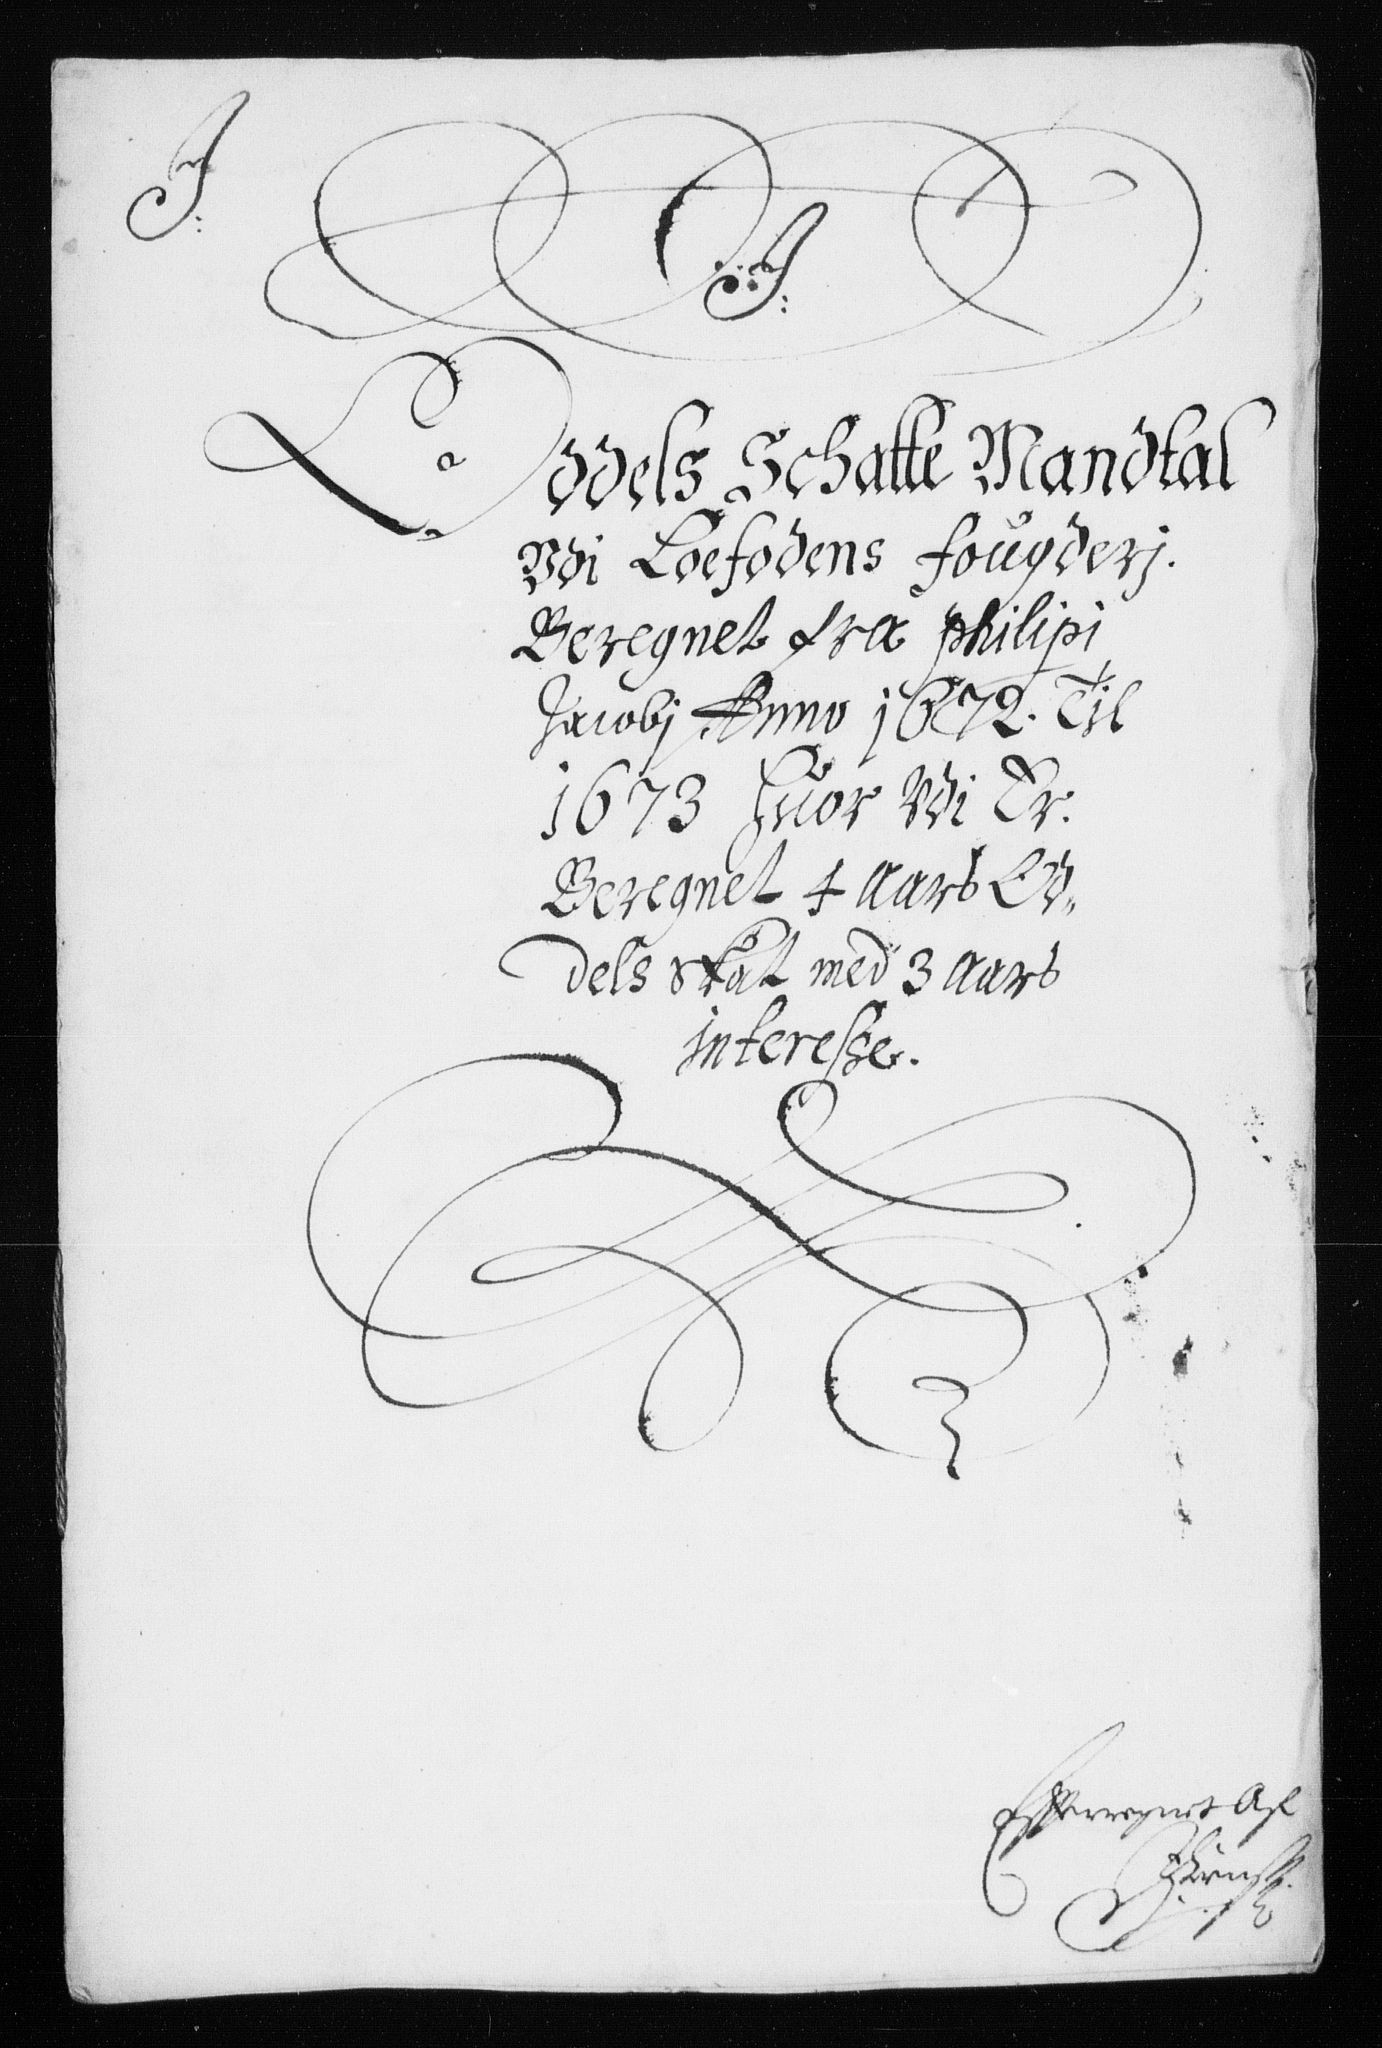 J:
J:
Oddels Schatte Mandtal
Vdi Loefodens fougderj.
Beregnet fra philipi
Jacobj Anno 1672. Til
1673 huor Vdi Er.
Beregnet 4 Aars Od„
dels skat med 3 Aars
interesse.
Efterregnet Af